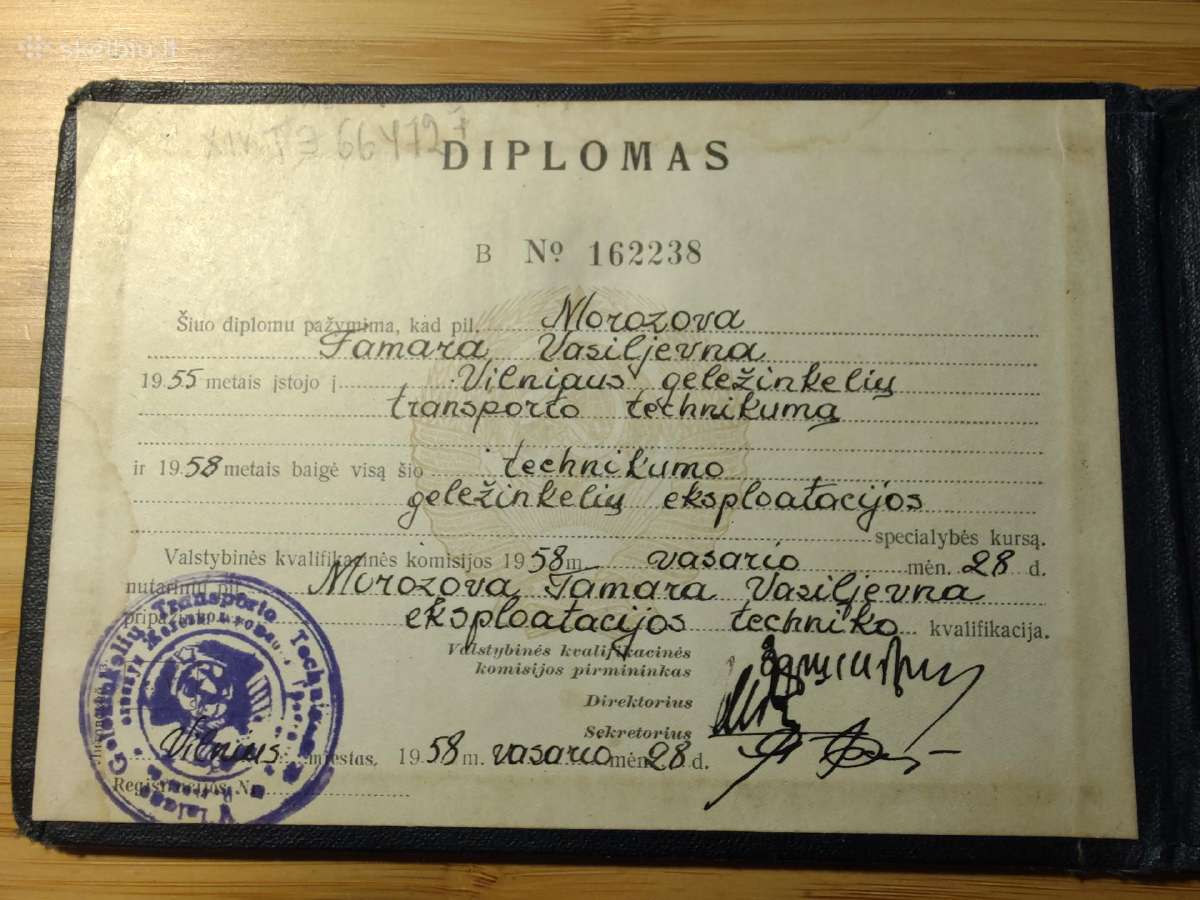 skelbiu.lt
XIV TE 664727
DIPLOMAS
B № 162238
Šiuo diplomu pažymima, kad pil. Morozova
Tamara Vasiljevna
1955 metais įstojo į Vilniaus geležinkelių
transporto technikumą
ir 1958 metais baigė visą šio technikumo
geležinkelių eksploatacijos
specialybės kursą.
Valstybinės kvalifikacinės komisijos 1958 m. vasario mėn. 28 d.
nutarimu pil. Morozova Tamara Vasiljevna
pripažinta eksploatacijos techniko kvalifikacija.
Valstybinės kvalifikacinės
komisijos pirmininkas
Direktorius
Sekretorius
Vilnius miestas. 1958 m. vasario mėn. 28 d.
Registracijos Nr.
Geležinkelių Transporto Technikumas